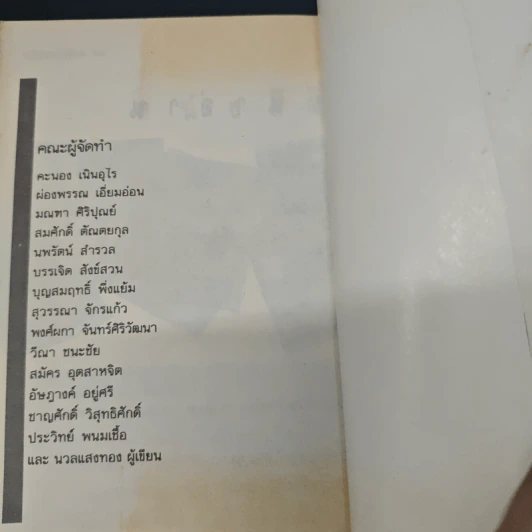 คณะผู้จัดทำ
คะนอง เนินอุไร
ผ่องพรรณ เอี่ยมอ่อน
มณฑา ศิริปุณย์
สมศักดิ์ ตัณตยกุล
นพรัตน์ สำรวล
บรรเจิด สังข์สวน
บุญสมฤทธิ์ พึ่งแย้ม
สุวรรณา จักรแก้ว
พงศ์ผกา จันทร์ศิริวัฒนา
วีณา ชนะชัย
สมัคร อุตสาหจิต
อัษฎางค์ อยู่ศรี
ชาญศักดิ์ วิสุทธิศักดิ์
ประวิทย์ พนมเชื้อ
และ นวลแสงทอง ผู้เขียน